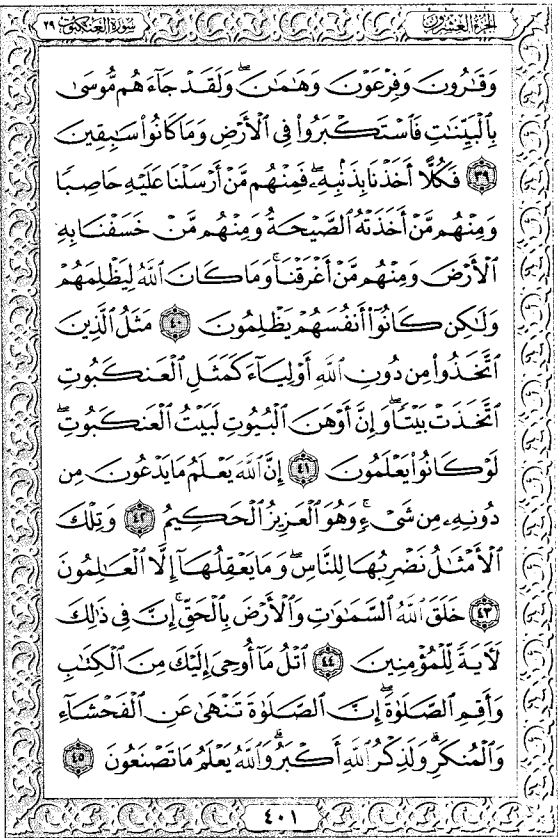 سورة العنكبوت ٢٩
الجزء العشرون
وَقَٰرُونَ وَفِرْعَوْنَ وَهَٰمَٰنَ ۖ وَلَقَدْ جَآءَهُم مُّوسَىٰ
بِٱلْبَيِّنَٰتِ فَٱسْتَكْبَرُوا۟ فِى ٱلْأَرْضِ وَمَا كَانُوا۟ سَٰبِقِينَ
٣٩ فَكُلًّا أَخَذْنَا بِذَنۢبِهِۦ ۖ فَمِنْهُم مَّنْ أَرْسَلْنَا عَلَيْهِ حَاصِبًا
وَمِنْهُم مَّنْ أَخَذَتْهُ ٱلصَّيْحَةُ وَمِنْهُم مَّنْ خَسَفْنَا بِهِ
ٱلْأَرْضَ وَمِنْهُم مَّنْ أَغْرَقْنَا ۚ وَمَا كَانَ ٱللَّهُ لِيَظْلِمَهُمْ
وَلَٰكِن كَانُوٓا۟ أَنفُسَهُمْ يَظْلِمُونَ ٤٠ مَثَلُ ٱلَّذِينَ
ٱتَّخَذُوا۟ مِن دُونِ ٱللَّهِ أَوْلِيَآءَ كَمَثَلِ ٱلْعَنكَبُوتِ
ٱتَّخَذَتْ بَيْتًا ۖ وَإِنَّ أَوْهَنَ ٱلْبُيُوتِ لَبَيْتُ ٱلْعَنكَبُوتِ ۖ
لَوْ كَانُوا۟ يَعْلَمُونَ ٤١ إِنَّ ٱللَّهَ يَعْلَمُ مَا يَدْعُونَ مِن
دُونِهِۦ مِن شَىْءٍ ۚ وَهُوَ ٱلْعَزِيزُ ٱلْحَكِيمُ ٤٢ وَتِلْكَ
ٱلْأَمْثَٰلُ نَضْرِبُهَا لِلنَّاسِ ۖ وَمَا يَعْقِلُهَآ إِلَّا ٱلْعَٰلِمُونَ
٤٣ خَلَقَ ٱللَّهُ ٱلسَّمَٰوَٰتِ وَٱلْأَرْضَ بِٱلْحَقِّ ۚ إِنَّ فِى ذَٰلِكَ
لَءَايَةً لِّلْمُؤْمِنِينَ ٤٤ ٱتْلُ مَآ أُوحِىَ إِلَيْكَ مِنَ ٱلْكِتَٰبِ
وَأَقِمِ ٱلصَّلَوٰةَ ۖ إِنَّ ٱلصَّلَوٰةَ تَنْهَىٰ عَنِ ٱلْفَحْشَآءِ
وَٱلْمُنكَرِ ۗ وَلَذِكْرُ ٱللَّهِ أَكْبَرُ ۗ وَٱللَّهُ يَعْلَمُ مَا تَصْنَعُونَ ٤٥
٤٠١